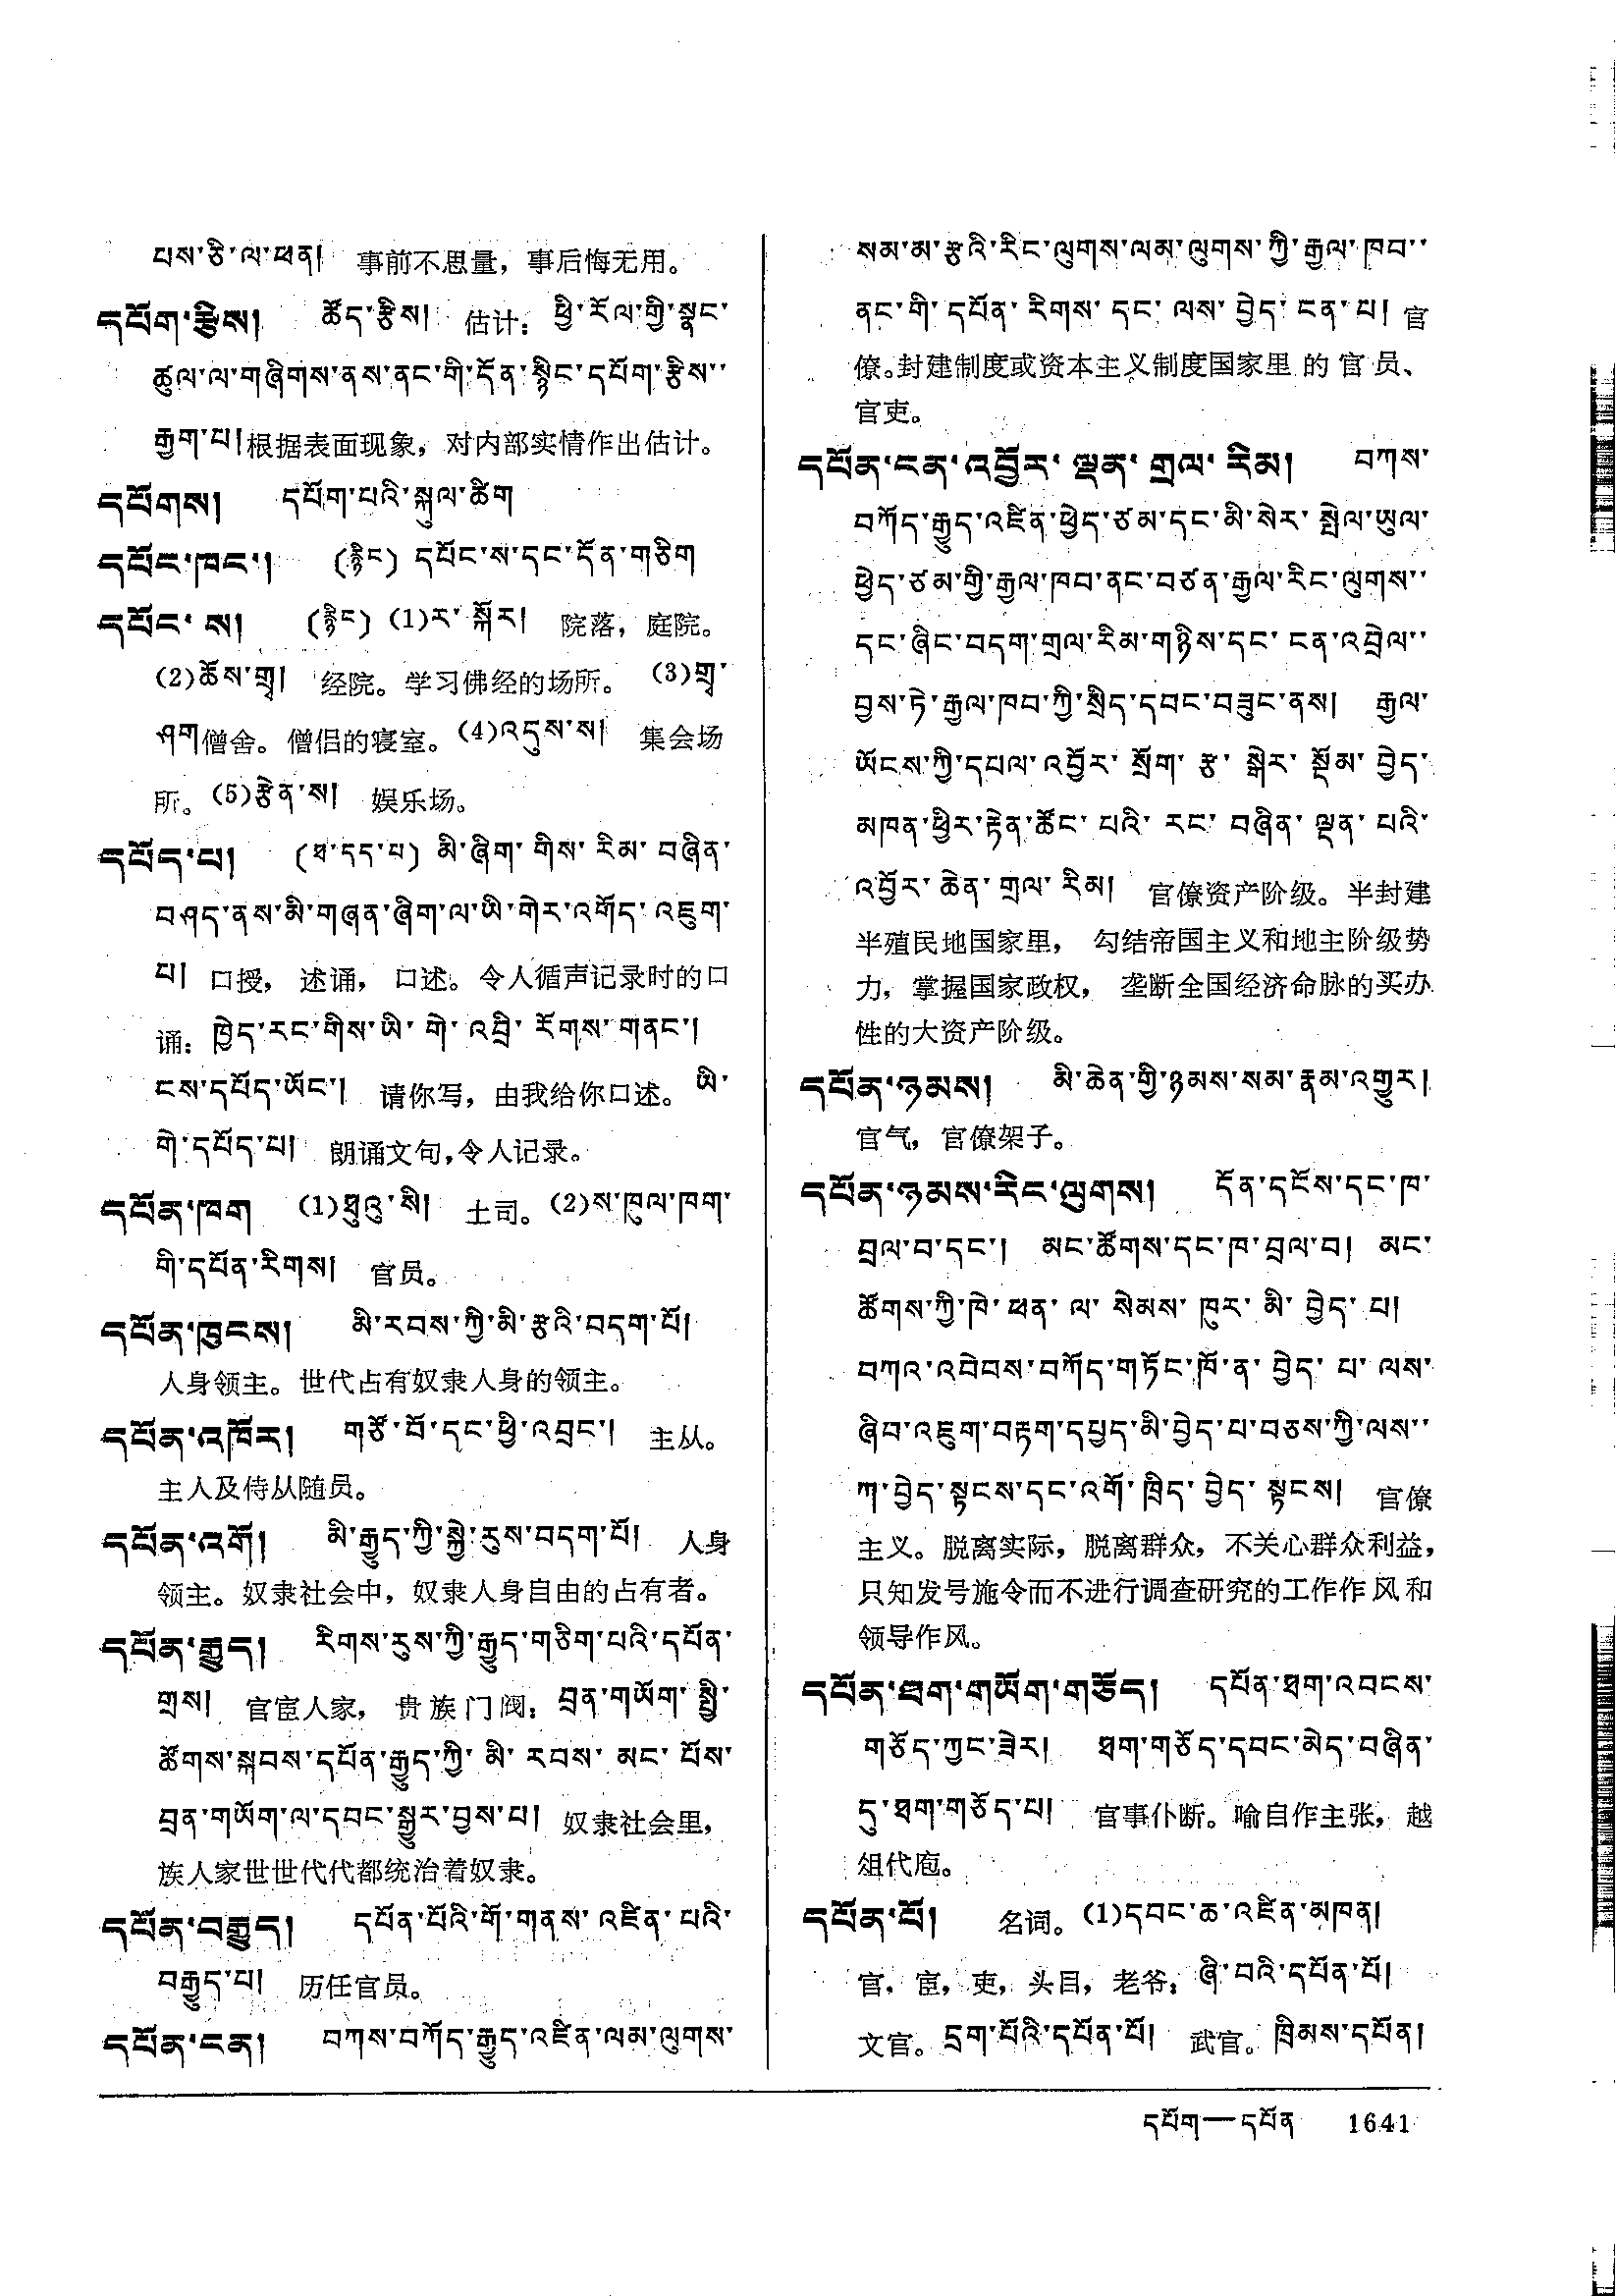 པས་ཅི་ལ་ཕན།  事前不思量，事后悔无用。
དཔོག་རྩིས།  ཚོད་རྩིས།  估计：ཕྱི་རོལ་གྱི་སྣང་
ཚུལ་ལ་གཞིགས་ནས་ནང་གི་དོན་སྙིང་དཔོག་རྩིས་་
རྒྱག་པ།根据表面现象，对内部实情作出估计。
དཔོགས།  དཔོག་པའི་སྐུལ་ཚིག
དཔོང་ཁང་།  (རྙིང) དཔོང་ས་དང་དོན་གཅིག
དཔོང་ས།  (རྙིང) (1)ར་སྐོར།  院落，庭院。
(2)ཆོས་གྲྭ།  经院。学习佛经的场所。(3)གྲྭ་
ཤག僧舍。僧侣的寝室。(4)འདུས་ས།  集会场
所。(5)རྩེན་ས།  娱乐场。
དཔོད་པ།  (ཐ་དད་པ) མི་ཞིག་གིས་རིམ་བཞིན་
བཤད་ནས་མི་གཞན་ཞིག་ལ་ཡི་གེར་འགོད་འཇུག་
པ།  口授，述诵，口述。令人循声记录时的口
诵：ཁྱེད་རང་གིས་ཡི་གེ་འབྲི་རོགས་གནང་།
ངས་དཔོད་ཡོང་།  请你写，由我给你口述。ཡི་
གེ་དཔོད་པ།  朗诵文句，令人记录。
དཔོན་ཁག  (1)ཐུའུ་སི།  土司。(2)ས་ཁུལ་ཁག་
གི་དཔོན་རིགས།  官员。
དཔོན་ཁུངས།  མི་རབས་ཀྱི་མི་རྩའི་བདག་པོ།
人身领主。世代占有奴隶人身的领主。
དཔོན་འཁོར།  གཙོ་བོ་དང་ཕྱི་འབྲང་།  主从。
主人及侍从随员。
དཔོན་འགོ།  མི་རྒྱུད་ཀྱི་སྐྱེ་རུས་བདག་པོ།  人身
领主。奴隶社会中，奴隶人身自由的占有者。
དཔོན་རྒྱུད།  རིགས་རུས་ཀྱི་རྒྱུད་གཅིག་པའི་དཔོན་
གྲས།  官宦人家，贵族门阀：བྲན་གཡོག་སྤྱི་
ཚོགས་སྐབས་དཔོན་རྒྱུད་ཀྱི་མི་རབས་མང་པོས་
བྲན་གཡོག་ལ་དབང་སྒྱུར་བྱས་པ།  奴隶社会里，
族人家世世代代都统治着奴隶。
དཔོན་བརྒྱུད།  དཔོན་པོའི་གོ་གནས་འཛིན་པའི་
བརྒྱུད་པ།  历任官员。
དཔོན་ངན།  བཀས་བཀོད་རྒྱུད་འཛིན་ལམ་ལུགས་
སམ་མ་རྩའི་རིང་ལུགས་ལམ་ལུགས་ཀྱི་རྒྱལ་ཁབ་་
ནང་གི་དཔོན་རིགས་དང་ལས་བྱེད་ངན་པ།  官
僚。封建制度或资本主义制度国家里的官员、
官吏。
དཔོན་ངན་འབྱོར་ལྡན་གྲལ་རིམ།  བཀས་
བཀོད་རྒྱུད་འཛིན་ཕྱེད་ཙམ་དང་མི་སེར་སྤེལ་ཡུལ་
ཕྱེད་ཙམ་གྱི་རྒྱལ་ཁབ་ནང་བཙན་རྒྱལ་རིང་ལུགས་་
དང་ཞིང་བདག་གྲལ་རིམ་གཉིས་དང་ངན་འབྲེལ་་
བྱས་ཏེ་རྒྱལ་ཁབ་ཀྱི་སྲིད་དབང་བཟུང་ནས།  རྒྱལ་
ཡོངས་ཀྱི་དཔལ་འབྱོར་སྲོག་རྩ་སྒེར་སྡོམ་བྱེད་
མཁན་ཕྱིར་རྟེན་ཚོང་པའི་རང་བཞིན་ལྡན་པའི་
འབྱོར་ཆེན་གྲལ་རིམ།  官僚资产阶级。半封建
半殖民地国家里，勾结帝国主义和地主阶级势
力，掌握国家政权，垄断全国经济命脉的买办
性的大资产阶级。
དཔོན་ཉམས།  མི་ཆེན་གྱི་ཉམས་སམ་རྣམ་འགྱུར།
官气，官僚架子。
དཔོན་ཉམས་རིང་ལུགས།  དོན་དངོས་དང་ཁ་
བྲལ་བ་དང་།  མང་ཚོགས་དང་ཁ་བྲལ་བ།  མང་
ཚོགས་ཀྱི་ཁེ་ཕན་ལ་སེམས་ཁུར་མི་བྱེད་པ།
བཀའ་འབེབས་བཀོད་གཏོང་ཁོ་ན་བྱེད་པ་ལས་
ཞིབ་འཇུག་བརྟག་དཔྱད་མི་བྱེད་པ་བཅས་ཀྱི་ལས་་
ཀ་བྱེད་སྟངས་དང་འགོ་ཁྲིད་བྱེད་སྟངས།  官僚
主义。脱离实际，脱离群众，不关心群众利益，
只知发号施令而不进行调查研究的工作作风和
领导作风。
དཔོན་ཐག་གཡོག་གཅོད།  དཔོན་ཐག་འབངས་
གཅོད་ཀྱང་ཟེར།  ཐག་གཅོད་དབང་མེད་བཞིན་
དུ་ཐག་གཅོད་པ།  官事仆断。喻自作主张，越
俎代庖。
དཔོན་པོ།  名词。(1)དབང་ཆ་འཛིན་མཁན།
官，宦，吏，头目，老爷：ཞི་བའི་དཔོན་པོ།
文官。དྲག་པོའི་དཔོན་པོ།  武官。ཁྲིམས་དཔོན།
དཔོག—དཔོན  1641